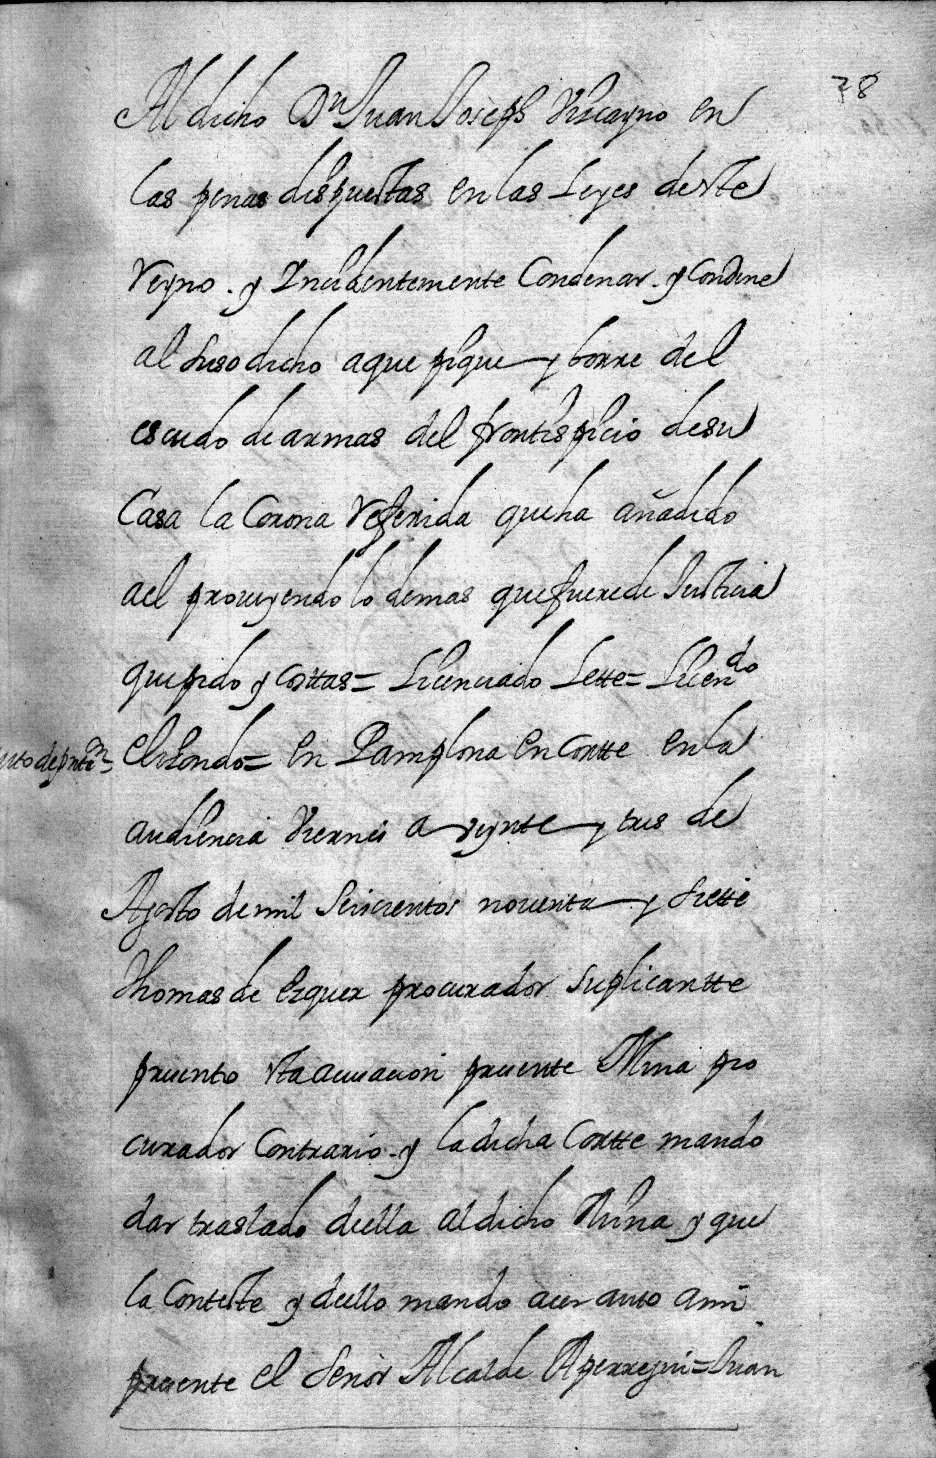 78
Al dicho Dn Juan Joseph Viscayno en
las penas dispuestas en las Leyes deste
Reyno. y Incidentemente Condenar. y Condene
al suso dicho aque pique y borre del
escudo de armas del frontispicio desu
Casa la Corona Referida queha añadido
ael proveyendo lo demas quefuerede Justicia
quepido y costtas= Licenciado Lette= Licendo
elizondo= en Pamplona en Cortte en la
audiencia Viernes a veynte y tres de
Agosto de mil seiscientos noventa y siette
Thomas de Ezquer procurador suplicantte
presento esta acusacion presente Mina pro
curador Contrario. y la dicha Cortte mando
dar traslado deella al dicho Mina y que
la Conteste y dello mando acer auto ami
presente el señor Alcalde Aperregui= Juan